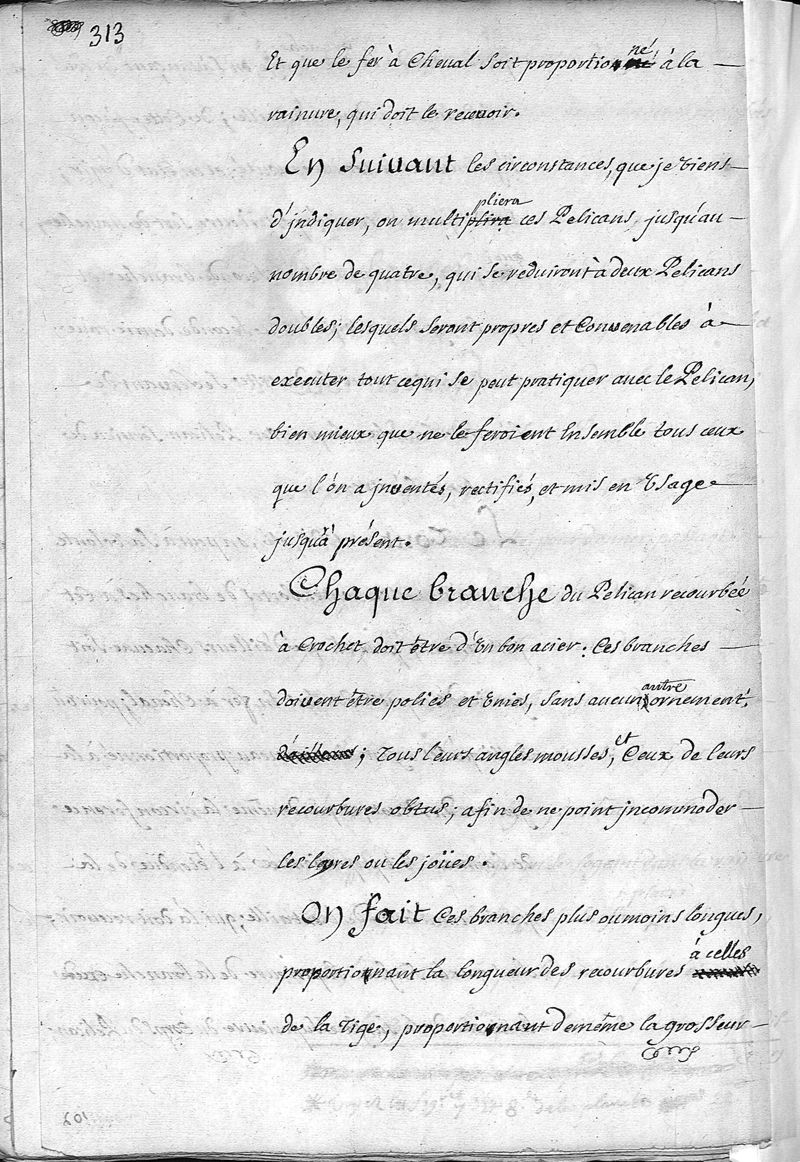 313
Et que le fer à Cheval soit proportionné à la
rainure, qui doit le recevoir.
En Suivant les circonstances, que je viens
d'jndiquer, on multipliera ces Pelicans, jusqu'au
nombre de quatre, qui se reduiront à deux Pelicans
doubles; lesquels seront propres et Convenables à
executer tout cequi se peut pratiquer avec le Pelican,
bien mieux que ne le feroient Ensemble tous ceux
que l'ón a jnventés, rectifiés, et mis en Usage
jusqu'à présent.
Chaque branche du Pelican recourbée
à Crochet doit être d'Un bon acier. Ces branches
doivent être polies et Unies, sans aucun autre ornement,
d'ailleurs; Tous leurs angles mousses, et Ceux de leurs
recourbures obtus; afin de ne point jncommoder
les levres ou les joües.
On fait Ces branches plus ou moins longues,
proportionnant la longueur des recourbures à celles
de la Tige, proportionnant de même la grosseur
102